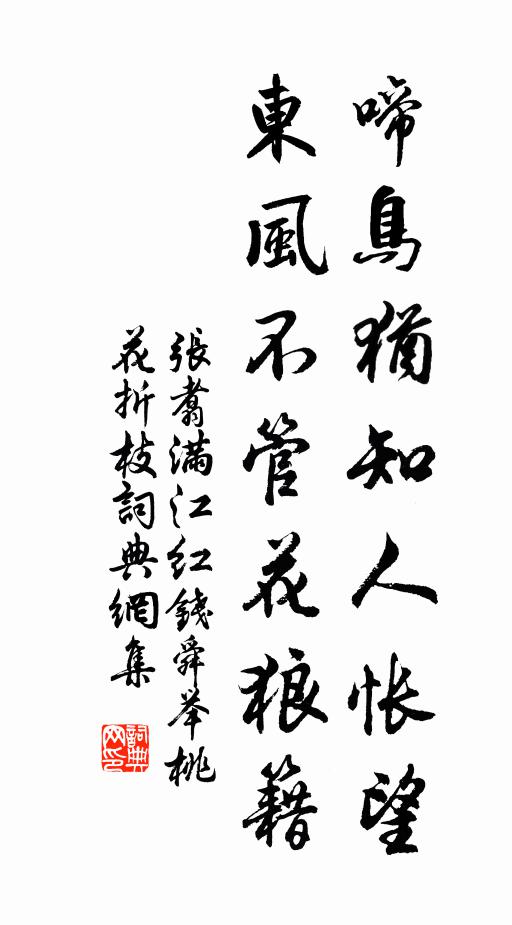 啼鳥猶知人悵望
東風不管花狼籍
張翥滿江紅錢舜举桃
花折枝詞典網集
詞典網印